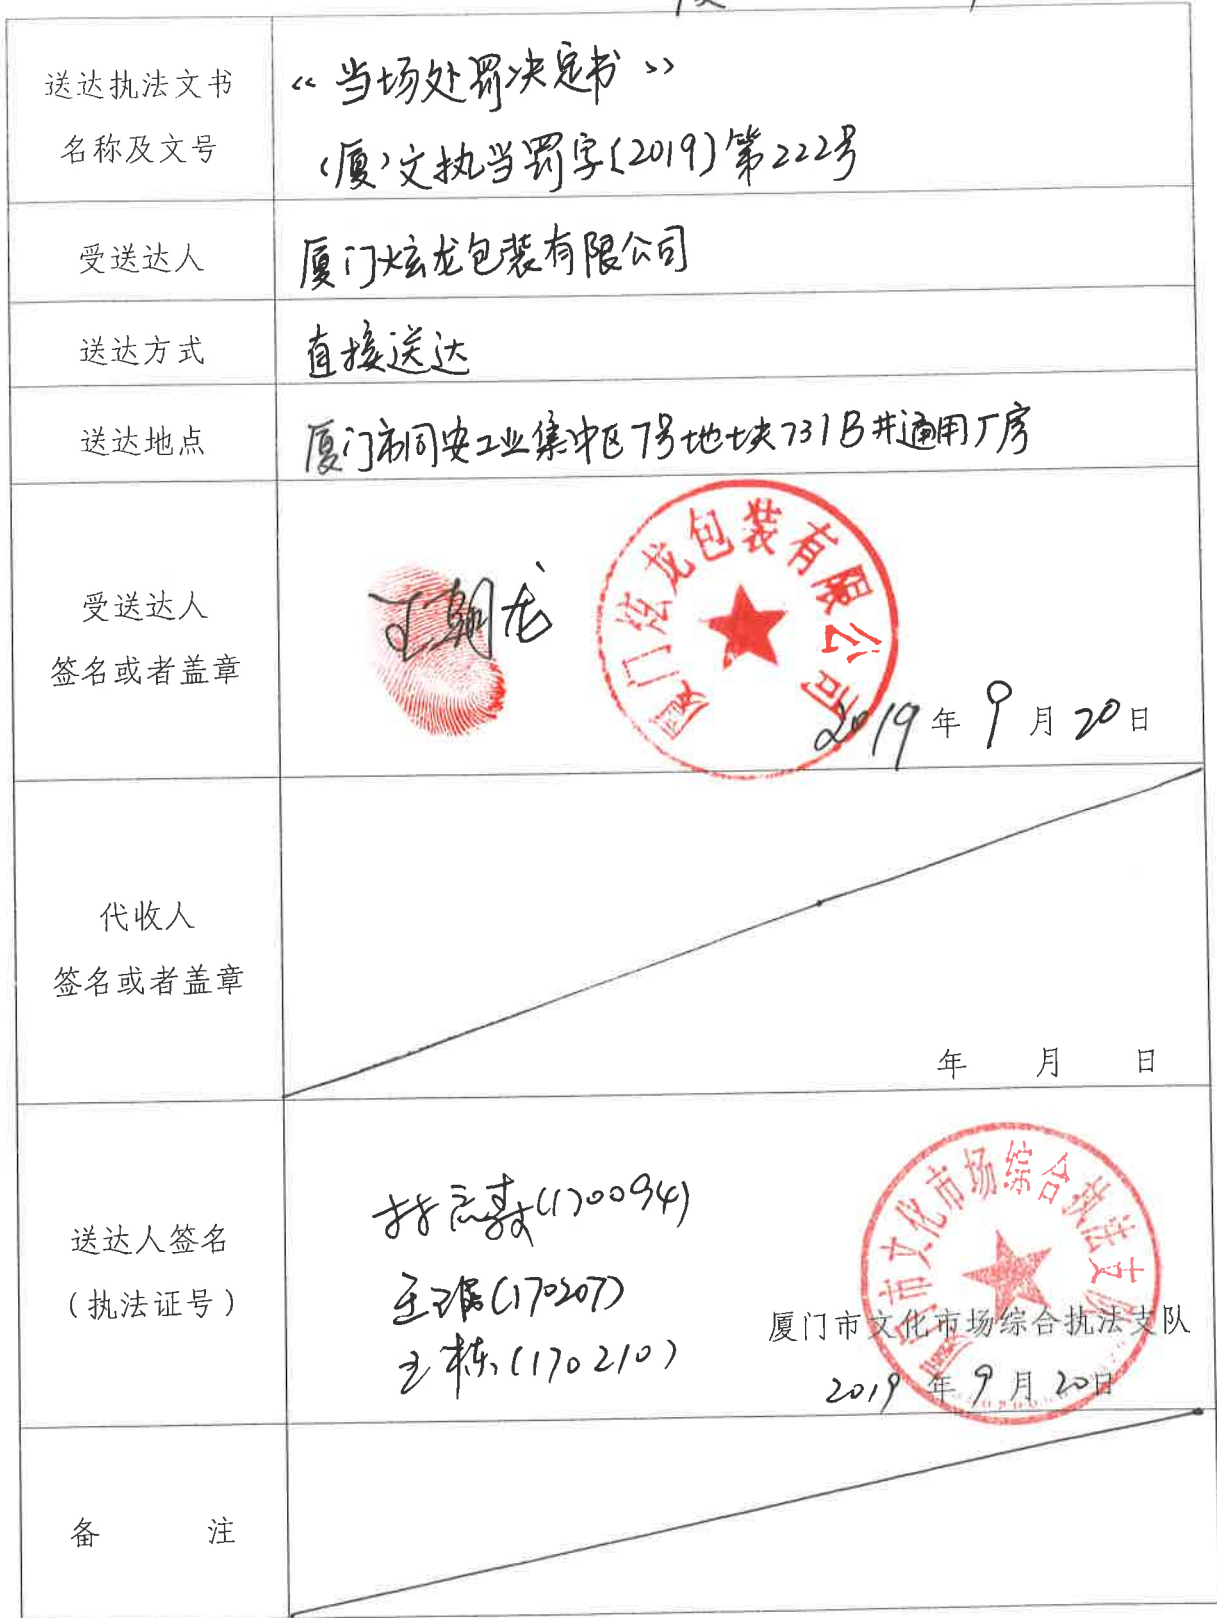 送达执法文书
名称及文号
《当场处罚决定书》
(厦)文执当罚字(2019)第222号
受送达人
厦门炫龙包装有限公司
送达方式
直接送达
送达地点
厦门市同安工业集中区7号地块731B#通用厂房
受送达人
签名或者盖章
王朝龙
厦门炫龙包装有限公司
2019年9月20日
代收人
签名或者盖章
年 月 日
送达人签名
(执法证号)
(170094)
(170207)
王栋(170210)
厦门市文化市场综合执法支队
厦门市文化市场综合执法支队
2019年9月20日
备 注